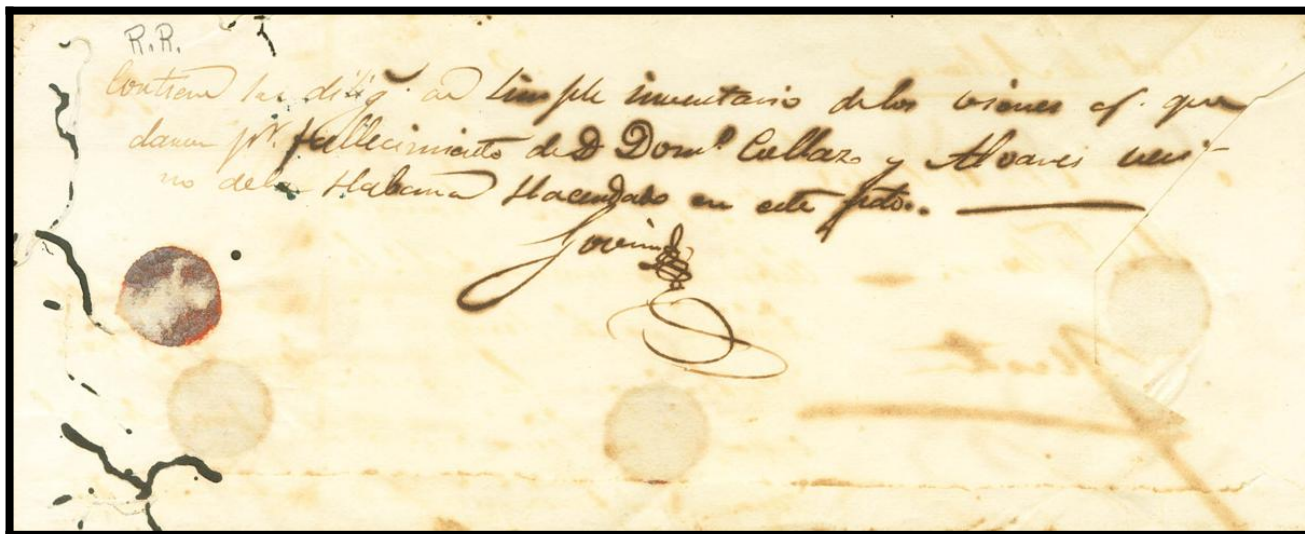 R.R.
Contiene las dilig.s de simple inventario delos vienes q.e que
daron p.r fallecimiento de D Dom.o Collazo y Alvares veci-
no dela Habana Hacendado en este